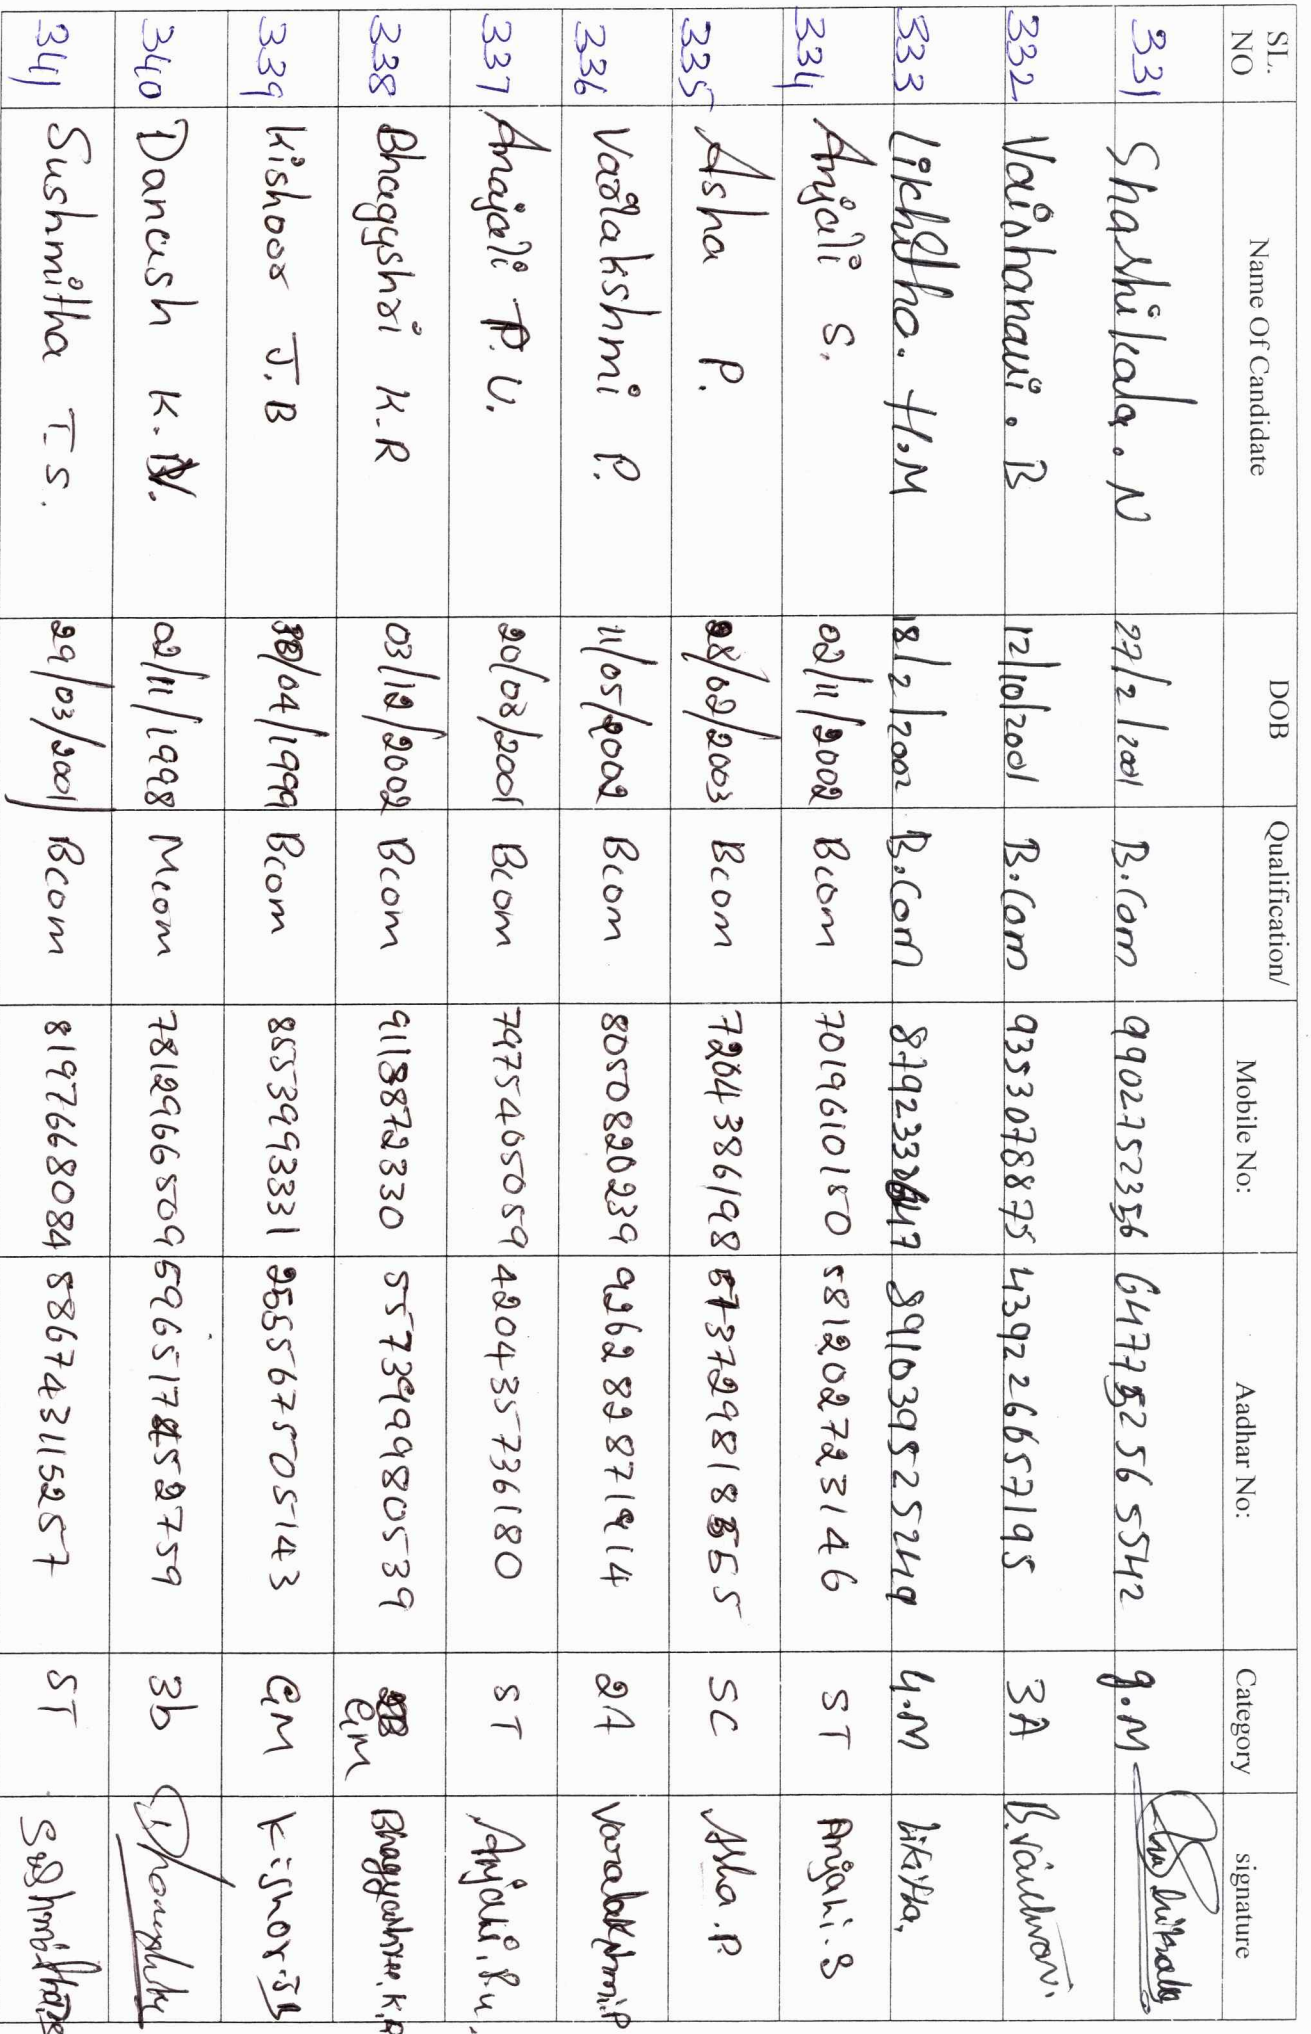 SL. NO Name Of Candidate DOB Qualification/ Mobile No: Aadhar No: Category signature
331 Shashikala. N 27/2/2001 B.Com 9902752356 647752565542 g.M
332 Vaishanavi. B 12/10/2001 B.Com 9353078875 439226657195 3A B.Vaishnavi.
333 Likhitha. H.M 18/2/2002 B.Com 891039525249 G.M Likitha,
334 Anjali S. 02/11/2002 Bcom 7019610180 581202723146 ST Anjali.S
335 Asha P. 28/02/2003 Bcom 7204386198 SC Asha.P
336 Varalakshmi P. 11/05/2002 Bcom 8050820239 926282871914 2A Varalakshmi.P
337 Anajali P.U. 20/08/2001 Bcom 7975465059 420435736180 ST Anjali.P.u.
338 Bhagyshri K.R 03/12/2002 Bcom 9113872330 557399980539 GM Bhagyashree.K.R
339 Kishoor J.B 30/04/1999 Bcom 8553993331 255567505143 GM Kishor.J.B
340 Danush K.N. 02/11/1998 Mcom 7812966509 3b
341 Sushmitha T.S. 29/03/2001 Bcom 8197668084 586743115257 ST